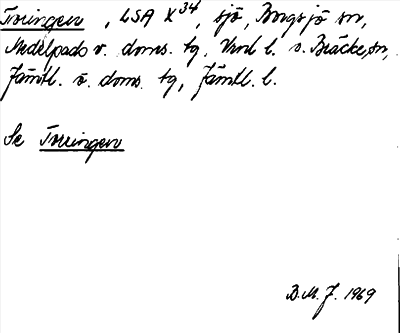 Torringen, LSA X 34, sjö, Borgsjö sn,
Medelpads v. doms. tg, Vnrl l. o. Bräcke sn,
Jämtl. ö. doms. tg, Jämtl. l.
Se Torringen
B.M.J. 1969